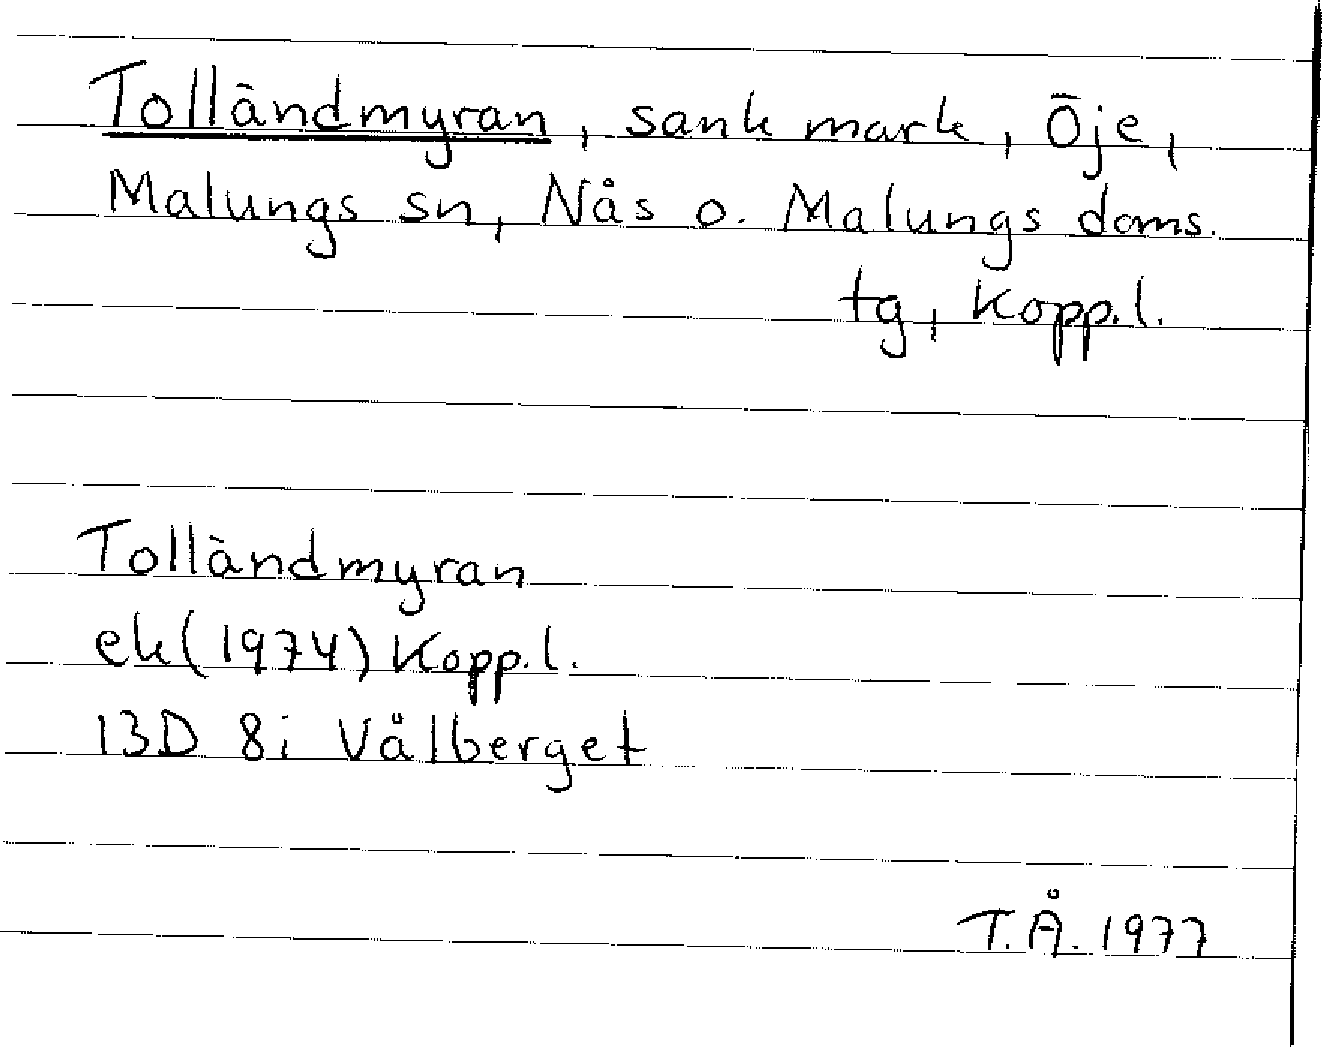 Tolländmyran, sank mark, Öje,
Malungs sn, Nås o. Malungs doms.
tg, Kopp.l.
Tolländmyran
ek (1974) Kopp.l.
13D 8i Vålberget
T.Å. 1977